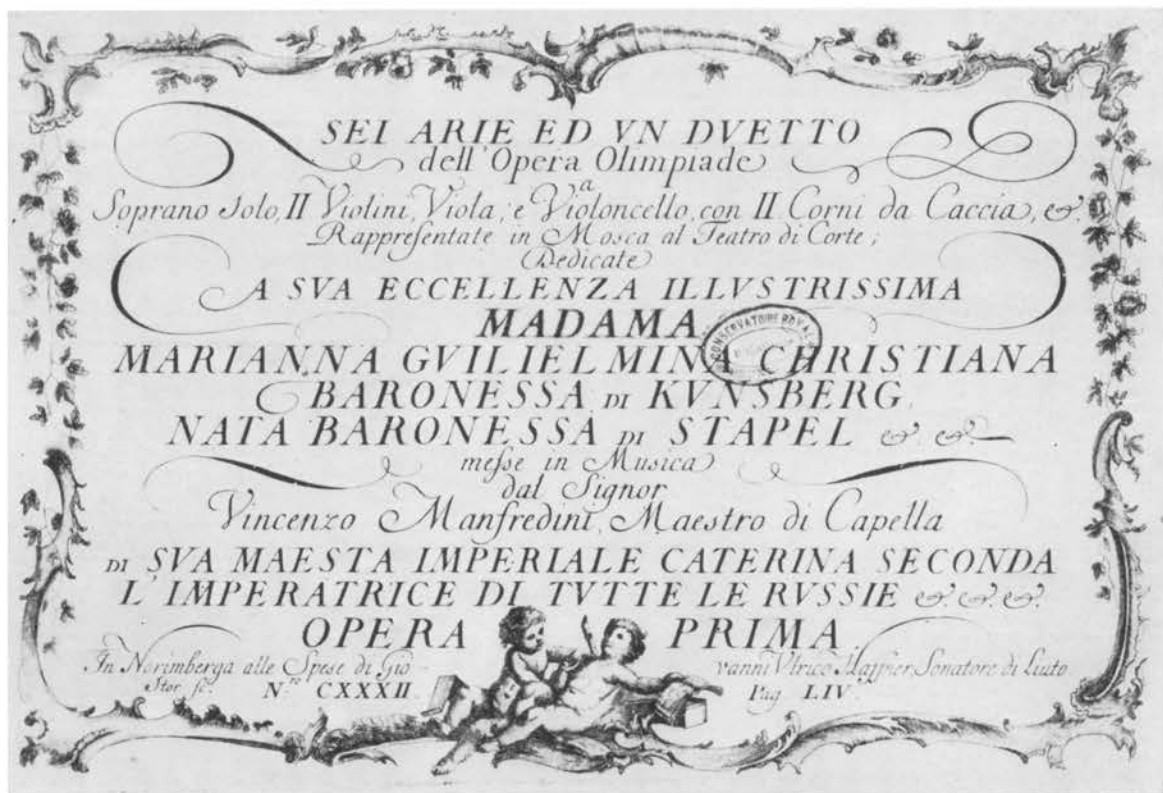 SEI ARIE ED VN DVETTO
dell' Opera Olimpiade
a
Soprano Solo, II Violini, Viola, e Violoncello, con II Corni da Caccia, &.
Rappresentate in Mosca al Teatro di Corte;
Dedicate
A SVA ECCELLENZA ILLVSTRISSIMA
MADAMA
MARIANNA GVILIELMINA CHRISTIANA
BARONESSA DI KVNSBERG,
NATA BARONESSA DI STAPEL &. &.
messe in Musica
dal Signor
Vincenzo Manfredini, Maestro di Capella
DI SVA MAESTA IMPERIALE CATERINA SECONDA
L'IMPERATRICE DI TVTTE LE RVSSIE &. &. &.
OPERA PRIMA
In Norimberga alle Spese di Gio-vanni Vlrico Haffner, Sonatore di Liuto
Stör sc. Nro CXXXII. Pag. LIV.
CONSERVATOIRE ROYAL